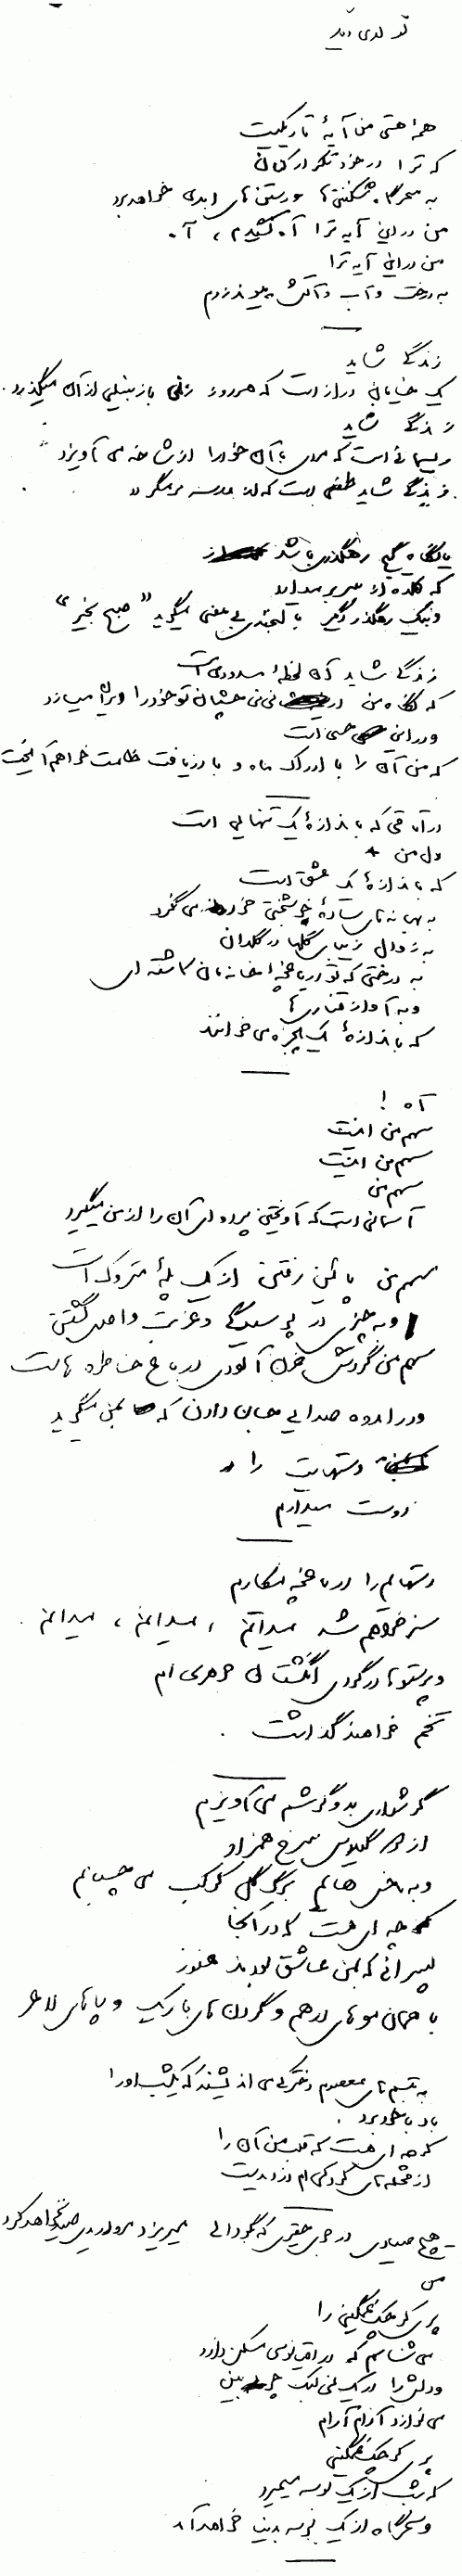 تولدی دیگر
همهٔ هستی من آیهٔ تاریکیست
که ترا در خود تکرار کنان
به سحرگاه شکفتن‌ها و رستن‌های ابدی خواهد برد
من در این آیه ترا آه کشیدم ، آه
من در این آیه ترا
به درخت و آب و آتش پیوند زدم
زندگی شاید
یک خیابان دراز است که هر روز زنی با زنبیلی از آن میگذرد .
زندگی شاید
ریسمانی است که مردی با آن خود را از شاخه می آویزد
زندگی شاید طفلی است که از مدرسه بر میگردد
یا نگاه گیج رهگذری باشد
که کلاه از سر بر میدارد
و به یک رهگذر دیگر با لبخندی بی معنی میگوید "صبح بخیر"
زندگی شاید آن لحظهٔ مسدودیست
که نگاه من در نی نی چشمان تو خود را ویران میسازد
و در این حسی است
که من آن را با ادراک ماه و با دریافت ظلمت خواهم آمیخت
در اتاقی که به اندازهٔ یک تنهایی است
دل من
که به اندازهٔ یک عشق است
به بهانه‌های سادهٔ خوشبختی خود می نگرد
به زوال زیبای گلها در گلدان
به درختی که تو در باغچهٔ خانه‌مان کاشته‌ای
و به آواز قناری‌ها
که به اندازهٔ یک پنجره می خوانند
آه !
سهم من اینست
سهم من اینست
سهم من
آسمانی است که آویختن پرده‌ای آن را از من میگیرد
سهم من پائین رفتن از یک پلهٔ متروک است
و به چیزی در پوسیدگی و غربت واصل گشتن
سهم من گردش حزن آلودی در باغ خاطره هاست
و در اندوه صدایی جان دادن که به من میگوید
دستهایت را
دوست میدارم
دستهایم را در باغچه میکارم
سبز خواهم شد میدانم ، میدانم ، میدانم .
و پرستوها در گودی انگشتان جوهری ام
تخم خواهند گذاشت .
گوشواری به دو گوشم می آویزم
از دو گیلاس سرخ همزاد
و به ناخن هایم برگ گل کوکب می چسبانم
کوچه ای هست که در آنجا
پسرانی که به من عاشق بودند هنوز
با همان موهای درهم و گردن‌های باریک و پاهای لاغر
به تبسم‌های معصوم دخترکی می اندیشند که یکشب او را
باد با خود برد .
کوچه ای هست که قلب من آن را
از محله‌های کودکی ام دزدیدست
هیچ صیادی در جوی حقیری که به گودالی میریزد مرواریدی صید نخواهد کرد
من
پری کوچک غمگینی را
می شناسم که در اقیانوسی مسکن دارد
و دلش را در یک نی لبک چوبین
می نوازد آرام آرام
پری کوچک غمگینی
که شب از یک بوسه میمیرد
و سحرگاه از یک بوسه به دنیا خواهد آمد